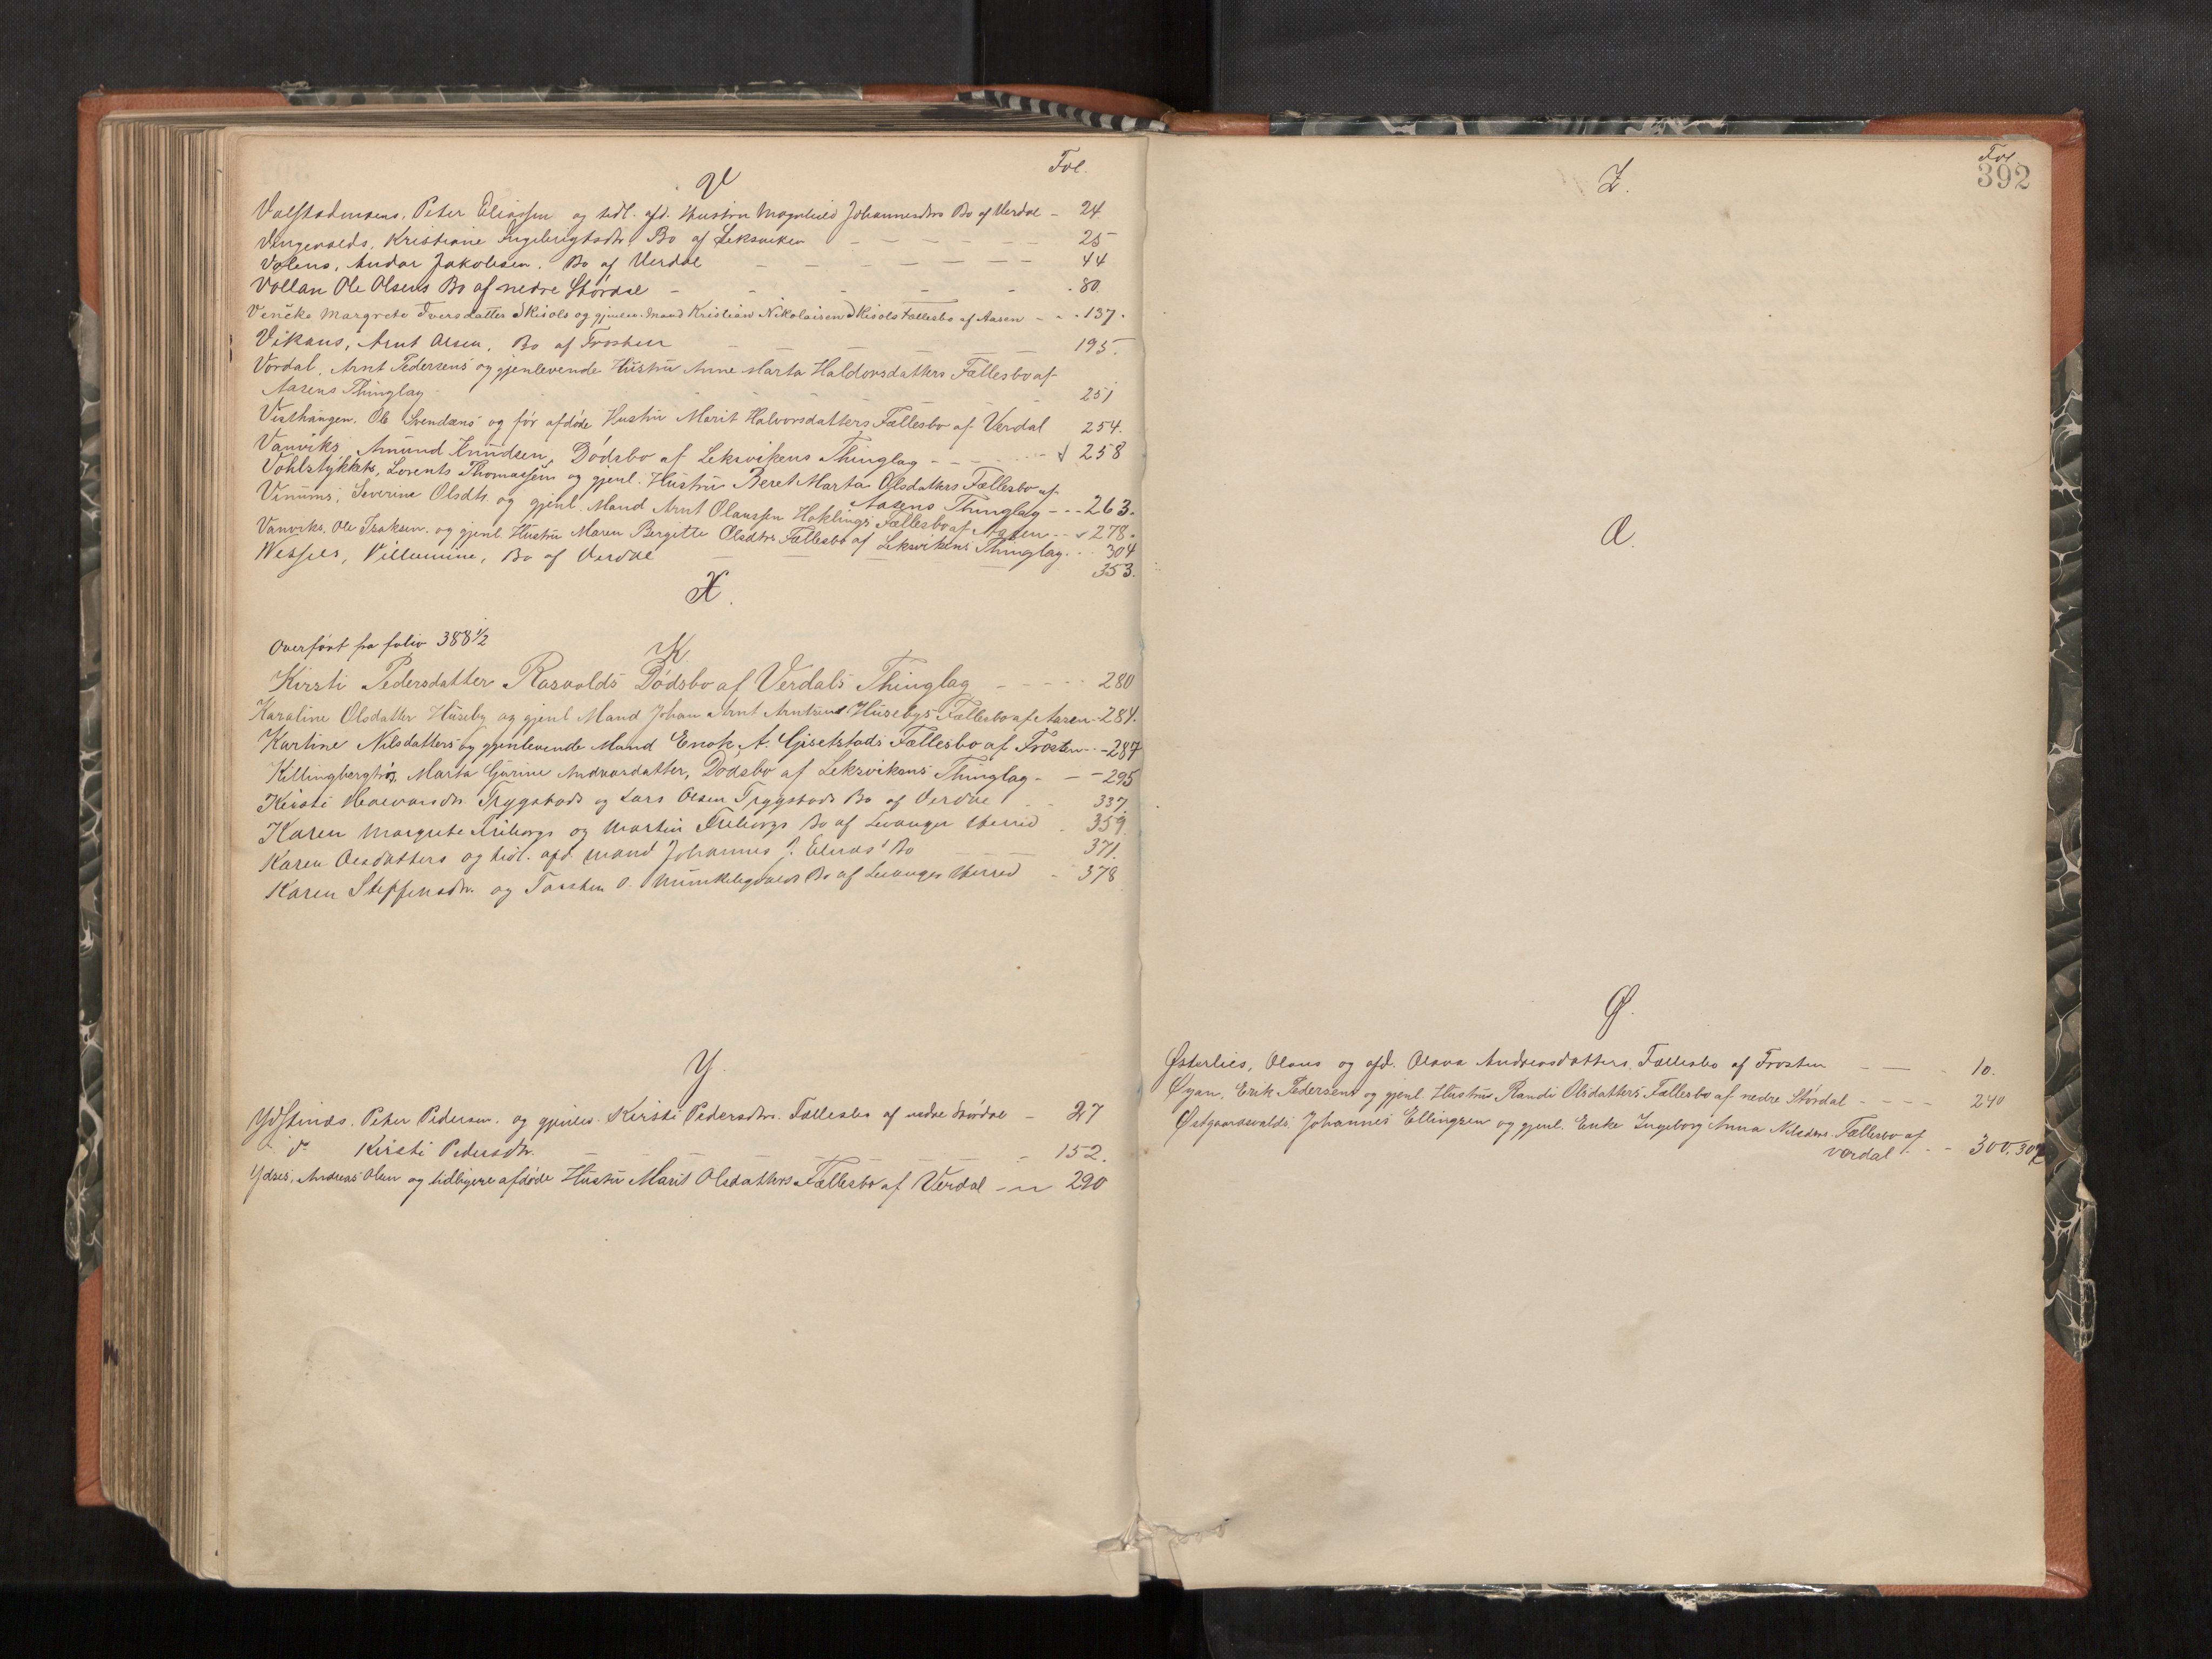 V
Fol.
Valstadmoens, Peter Eliassen og tidl. afd. Hustru Magnhild Johannesdtrs Bo af Verdal - 24.
Vingevolds, Kristiane Ingebrigtsdtr. Bo af Leksviken - - - - - - 25
Volens, Andor Jakobsen. Bo af Verdal - - - - - - - 44
Vollan Ole Olsens Bo af nedre Stördal - - - - - 80.
Margrete Iversdatter Skjols og gjenlev. Mand Kristian Nikolaisen Skjols Fællesbo af Aasen - - 137.
Vikans, Arnt Olsen, Bo af Frosten - - - - 195.
Vordal, Arnt Pedersens og gjenlevende Hustru Anne Marta Haldorsdatters Fællesbo af
Aasens Thinglag - - - - - 251
Visthaugen. Ole Svendsens og før afdøde Hustru Marit Halvorsdatters Fællesbo af Verdal 254.
Vanviks, Amund Knudsen, Dödsbo af Leksvikens Thinglag - - - - - 258
Vohlstykkets, Lorents Thomassens og gjenl. Hustru Beret Marta Olsdatters Fællesbo af
Aasens Thinglag - - - 263.
Vinums, Severine Olsdtr. og gjenl. Mand Arnt Olaussen Hoklings Fællesbo af Aasen - - 278.
Vanviks. Ole Isaksen. og gjenl. Hustru Maren Bergitte Olsdtrs Fællesbo af Leksvikens Thinglag . . 304
Wessels, Villumine, Bo af Verdal - - - 353.
X.
Overført fra folio 388 1/2
K.
Kirsti Pedersdatter Rasvolds Dödsbo af Verdals Thinglag - - - - - 280
Karoline Olsdatter Huseby og gjenl Mand Johan Arnt Arntsens Husebys Fællesbo af Aasen - 284.
Kartine Nilsdatters og gjenlevende Mand Enok A. Gjsetstads Fællesbo af Frosten - - 287
Killingberghs, Marta Gurine Andreasdatter, Dödsbo af Leksvikens Thinglag - - - 295
Kirsti Haavardsdtr. Trygstads og Lars Olsen Trygstads Bo af Verdal - - 337.
Karen Margrete Friborgs og Martin Friborgs Bo af Levanger Herred - 359.
Karen Olsdatters og tidl. afd. Mand Johannes J. Elnæs' Bo 371.
Karen Steffensdtr. og Torsten O. Munkebygvolds Bo af Levanger Herred - 378
Y.
Ydstinæs. Peter Pedersen. og gjenlev. Kirsti Pedersdtrs. Fællesbo af nedre Stördal - 27
do Kirsti Pedersdtr. - - - - - 152.
Ydses, Andreas Olsen og tidligere afdøde Hustru Marit Olsdatters Fællesbo af Verdal - - 290
Fol
392
Z.
Æ.
Ø.
Østerlies, Olaus og afd. Olava Andreasdatters. Fællesbo af Frosten - - - 10.
Øyan, Erik Pedersens og gjenl. Hustru Randi Olsdatters Fællesbo af nedre Stördal - - - - 240
Østgaardsvolds, Johannes Ellingsen og gjenl. Enke Ingeborg Anna Nilsdtrs. Fællesbo af
Verdal - - 300, 307